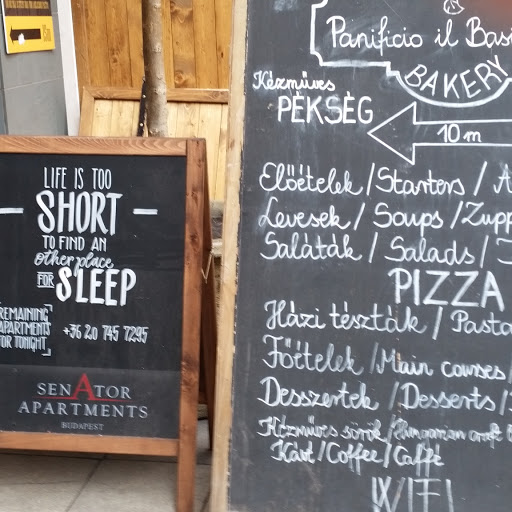 LIFE IS TOO
SHORT
TO FIND AN
other place
FOR SLEEP
REMAINING
APARTMENTS
FOR TONIGHT
+36 20 745 7295
SENATOR
APARTMENTS
BUDAPEST
Panificio il Basi
BAKERY
Kézműves
PÈKSÈG
10 m
Előételek / Starters / A
Levesek / Soups / Zupp
Saláták / Salads / I
PIZZA
Házi tészták / Pasta
Főételek / Main courses /
Desszertek / Desserts /
Kézműves sörök / Hungarian craft b
Kávé / Coffee / Caffé
WIFI